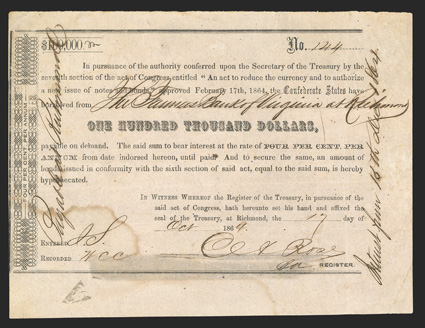 $100,000 No. 124
In pursuance of the authority conferred upon the Secretary of the Treasury by the
seventh section of the act of Congress entitled "An act to reduce the currency and to authorize
a new issue of notes and bonds," approved February 17th, 1864, the Confederate States have
borrowed from The Farmers Bank of Virginia at Richmond
ONE HUNDRED THOUSAND DOLLARS,
payable on demand. The said sum to bear interest at the rate of FOUR PER CENT. PER
ANNUM from date indorsed hereon, until paid. And to secure the same, an amount of
bonds issued in conformity with the sixth section of said act, equal to the said sum, is hereby
hypothecated.
In Witness Whereof the Register of the Treasury, in pursuance of the
said act of Congress, hath hereunto set his hand and affixed the
seal of the Treasury, at Richmond, the 17 day of
Oct 1864.
Entered J.S.
Recorded WCC
C A Rose
REGISTER.
Payable at Richmond
Interest from 16th 1864
FOUR PER CENT. PER ANNUM